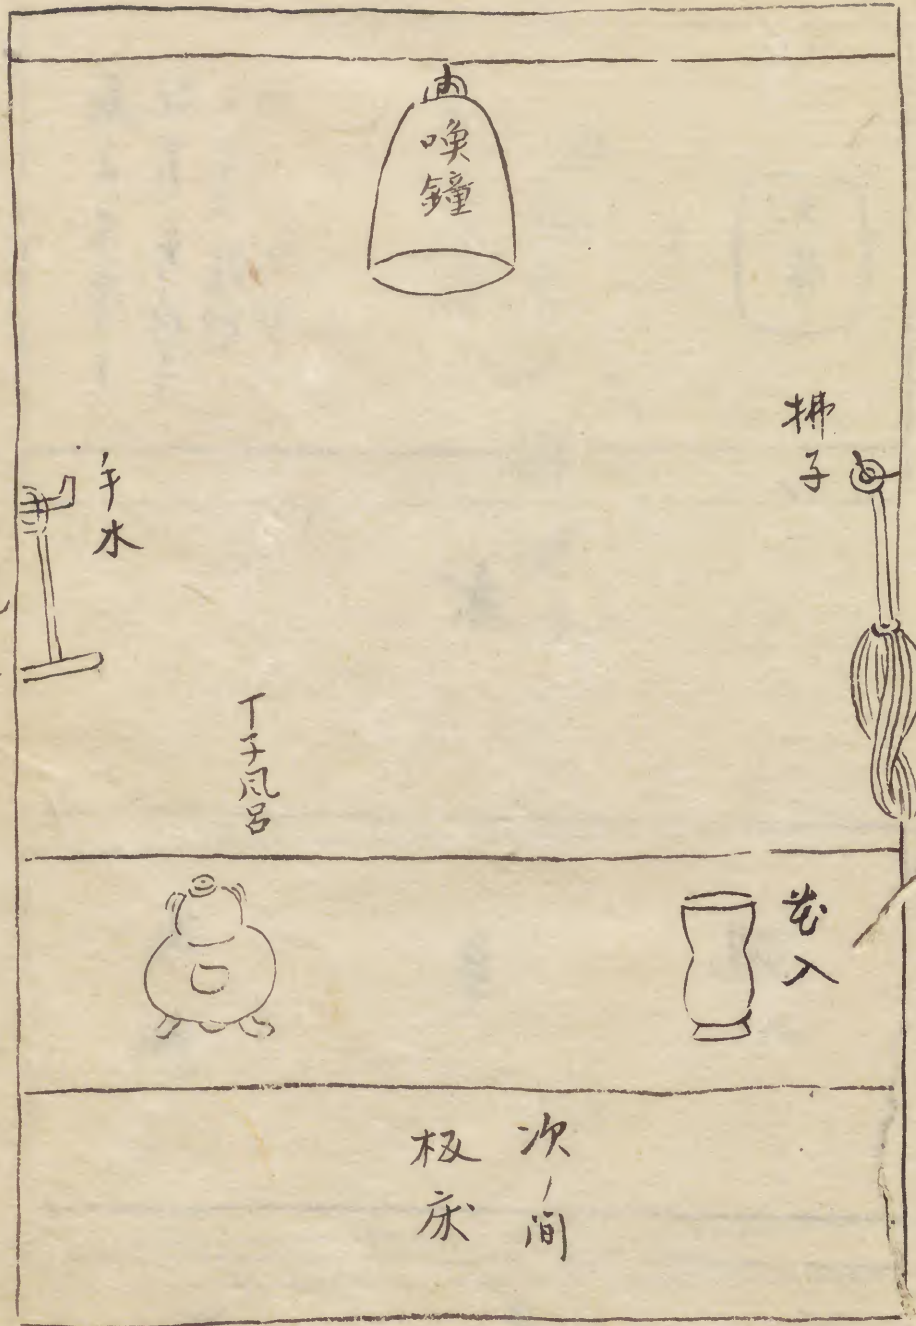 喚鐘
拂子
手水
丁子風呂
花入
次ノ間
板床